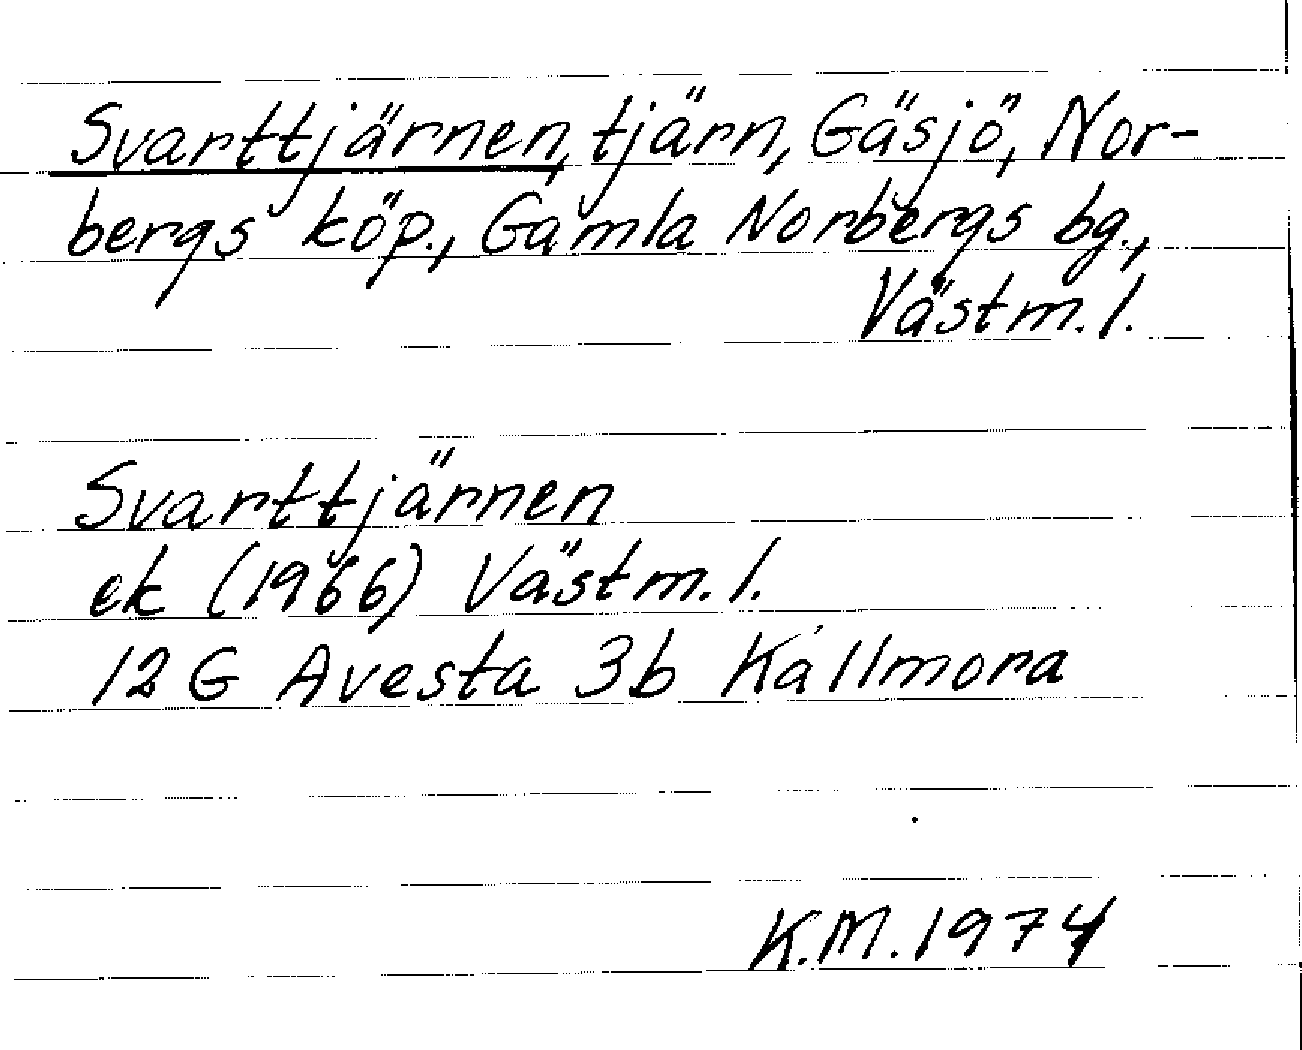 Svarttjärnen, tjärn, Gäsjö, Nor-
bergs köp., Gamla Norbergs bg.,
Västm. l.
Svarttjärnen
ek (1966) Västm. l.
12 G Avesta 3b Kállmora
K.M. 1974